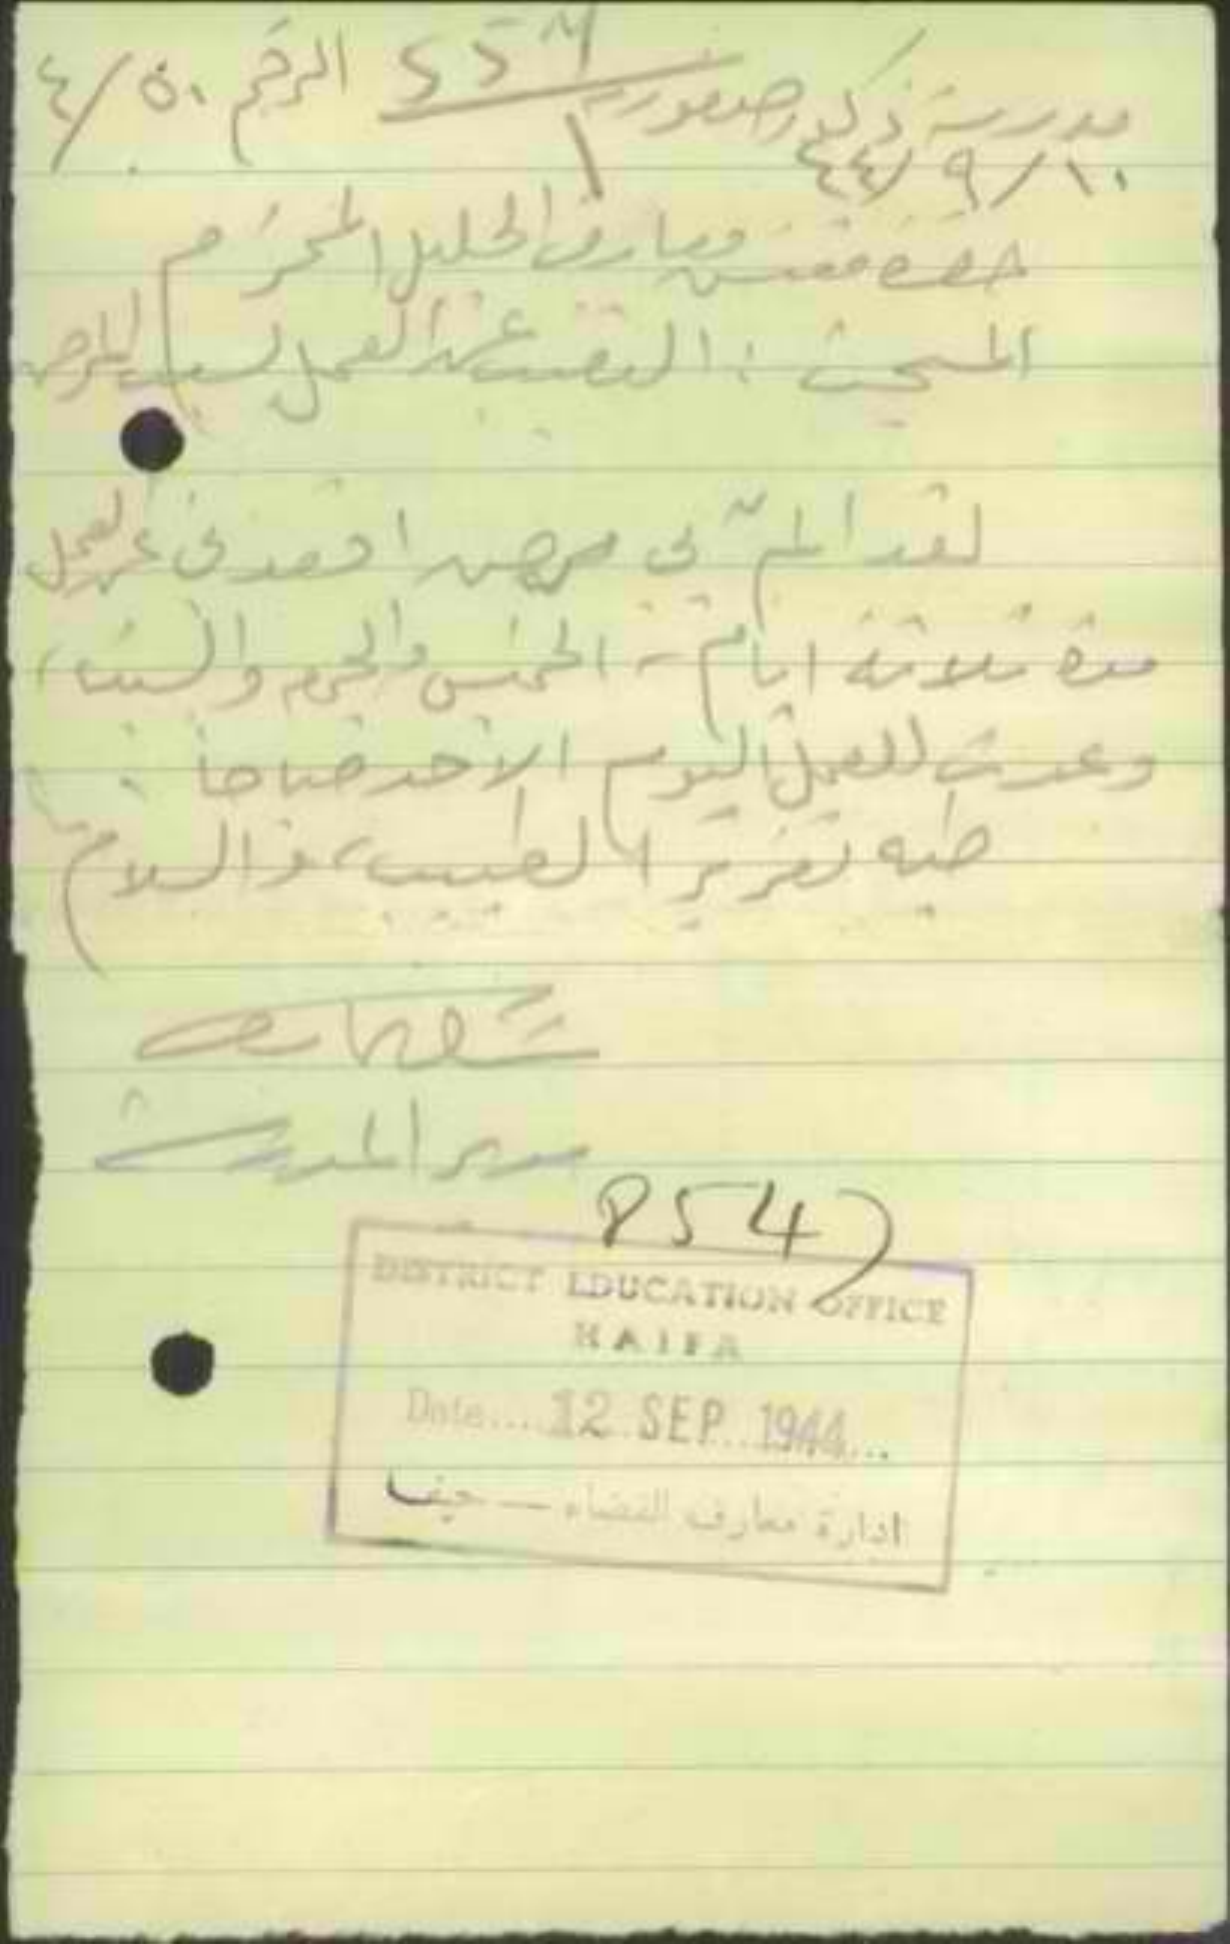 مدرسة ذكور صفورية الرقم ٤/٥٠
١٠/٩/٤٤
حضرة مفتش معارف الجليل المحترم
المبحث : التغيب عن العمل بسبب المرض
لقد ألمّ بي مرض اقعدني عن العمل
مدة ثلاثة ايام - الخميس والجمعة والسبت،
وعدت للعمل اليوم الأحد صباحاً .
طيه تقرير الطبيب، والسلام
مدير المدرسة
8547
DISTRICT EDUCATION OFFICE
HAIFA
Date.... 12 SEP 1944 ...
ادارة معارف القضاء — حيفا